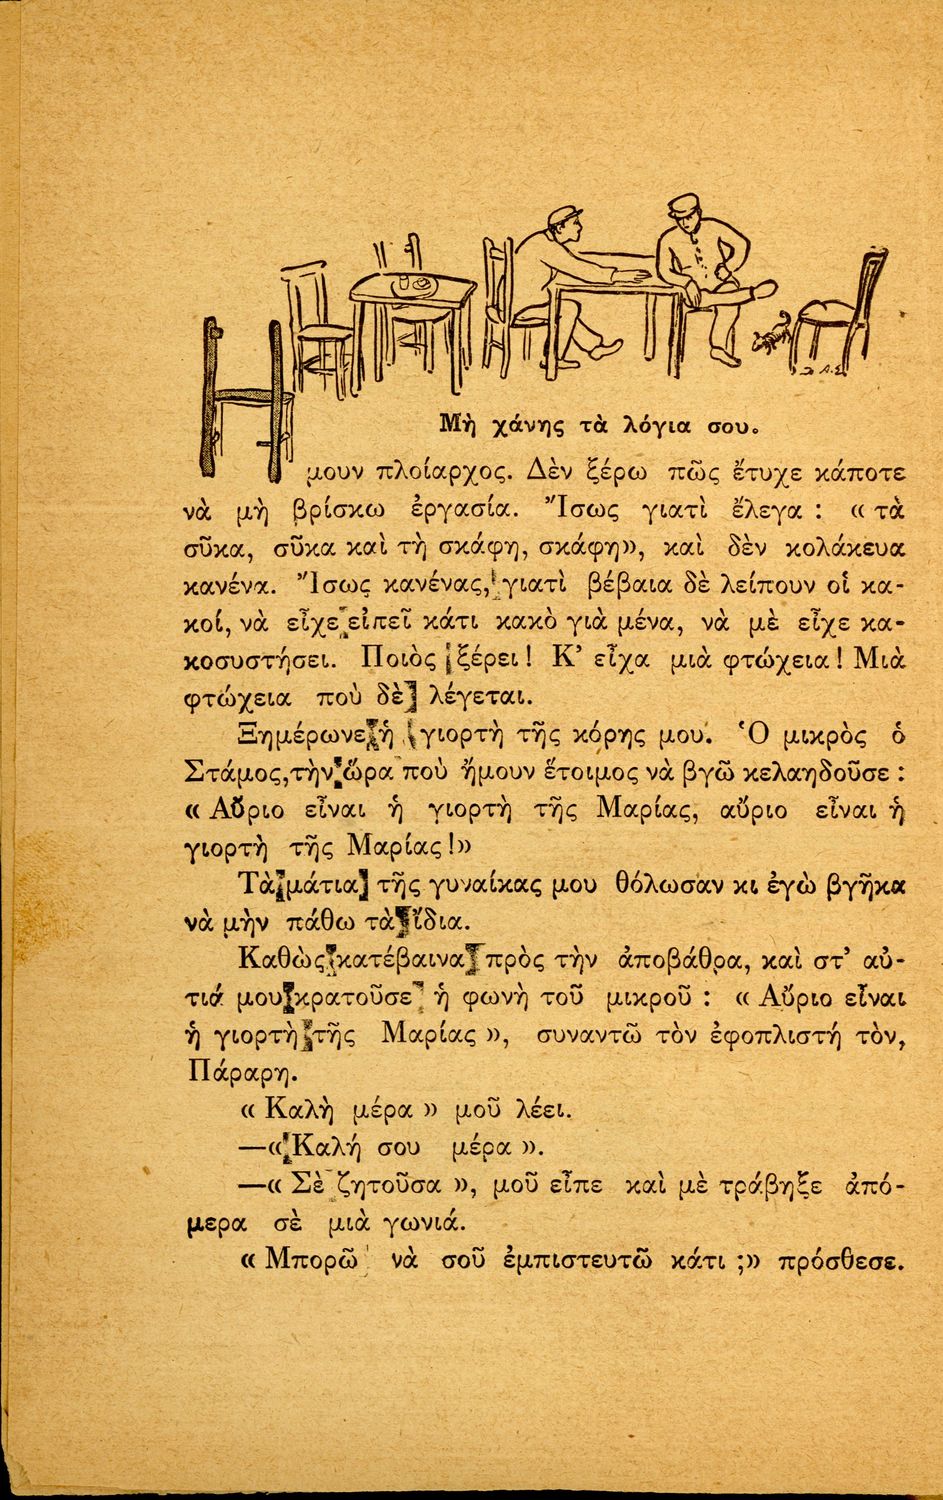 Μὴ χάνης τὰ λόγια σου.
Ἤμουν πλοίαρχος. Δὲν ξέρω πῶς ἔτυχε κάποτε
νὰ μὴ βρίσκω ἐργασία. Ἴσως γιατὶ ἔλεγα : « τὰ
σῦκα, σῦκα καὶ τὴ σκάφη, σκάφη», καὶ δὲν κολάκευα
κανένα. Ἴσως κανένας, γιατὶ βέβαια δὲ λείπουν οἱ κα-
κοί, νὰ εἶχε εἰπεῖ κάτι κακὸ γιὰ μένα, νὰ μὲ εἶχε κα-
κοσυστήσει. Ποιὸς ξέρει ! Κ’ εἶχα μιὰ φτώχεια ! Μιὰ
φτώχεια ποὺ δὲ λέγεται.
Ξημέρωνε ἡ γιορτὴ τῆς κόρης μου. Ὁ μικρὸς ὁ
Στάμος, τὴν ὥρα ποὺ ἤμουν ἕτοιμος νὰ βγῶ κελαηδοῦσε :
« Αὔριο εἶναι ἡ γιορτὴ τῆς Μαρίας, αὔριο εἶναι ἡ
γιορτὴ τῆς Μαρίας !»
Τὰ μάτια τῆς γυναίκας μου θόλωσαν κι ἐγὼ βγῆκα
νὰ μὴν πάθω τὰ ἴδια.
Καθὼς κατέβαινα πρὸς τὴν ἀποβάθρα, καὶ στ’ αὐ-
τιά μου κρατοῦσε ἡ φωνὴ τοῦ μικροῦ : « Αὔριο εἶναι
ἡ γιορτὴ τῆς Μαρίας », συναντῶ τὸν ἐφοπλιστή τὸν,
Πάραρη.
« Καλὴ μέρα » μοῦ λέει.
—« Καλή σου μέρα ».
—« Σὲ ζητοῦσα », μοῦ εἶπε καὶ μὲ τράβηξε ἀπό-
μερα σὲ μιὰ γωνιά.
« Μπορῶ νὰ σοῦ ἐμπιστευτῶ κάτι ;» πρόσθεσε.